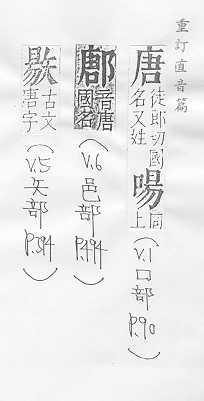 重訂直音篇
唐徒郎切國名又姓啺同上(V.1口部P.90)
鄌音唐國名(V.6邑部P.494)
古文唐字(V.5矢部P.394)